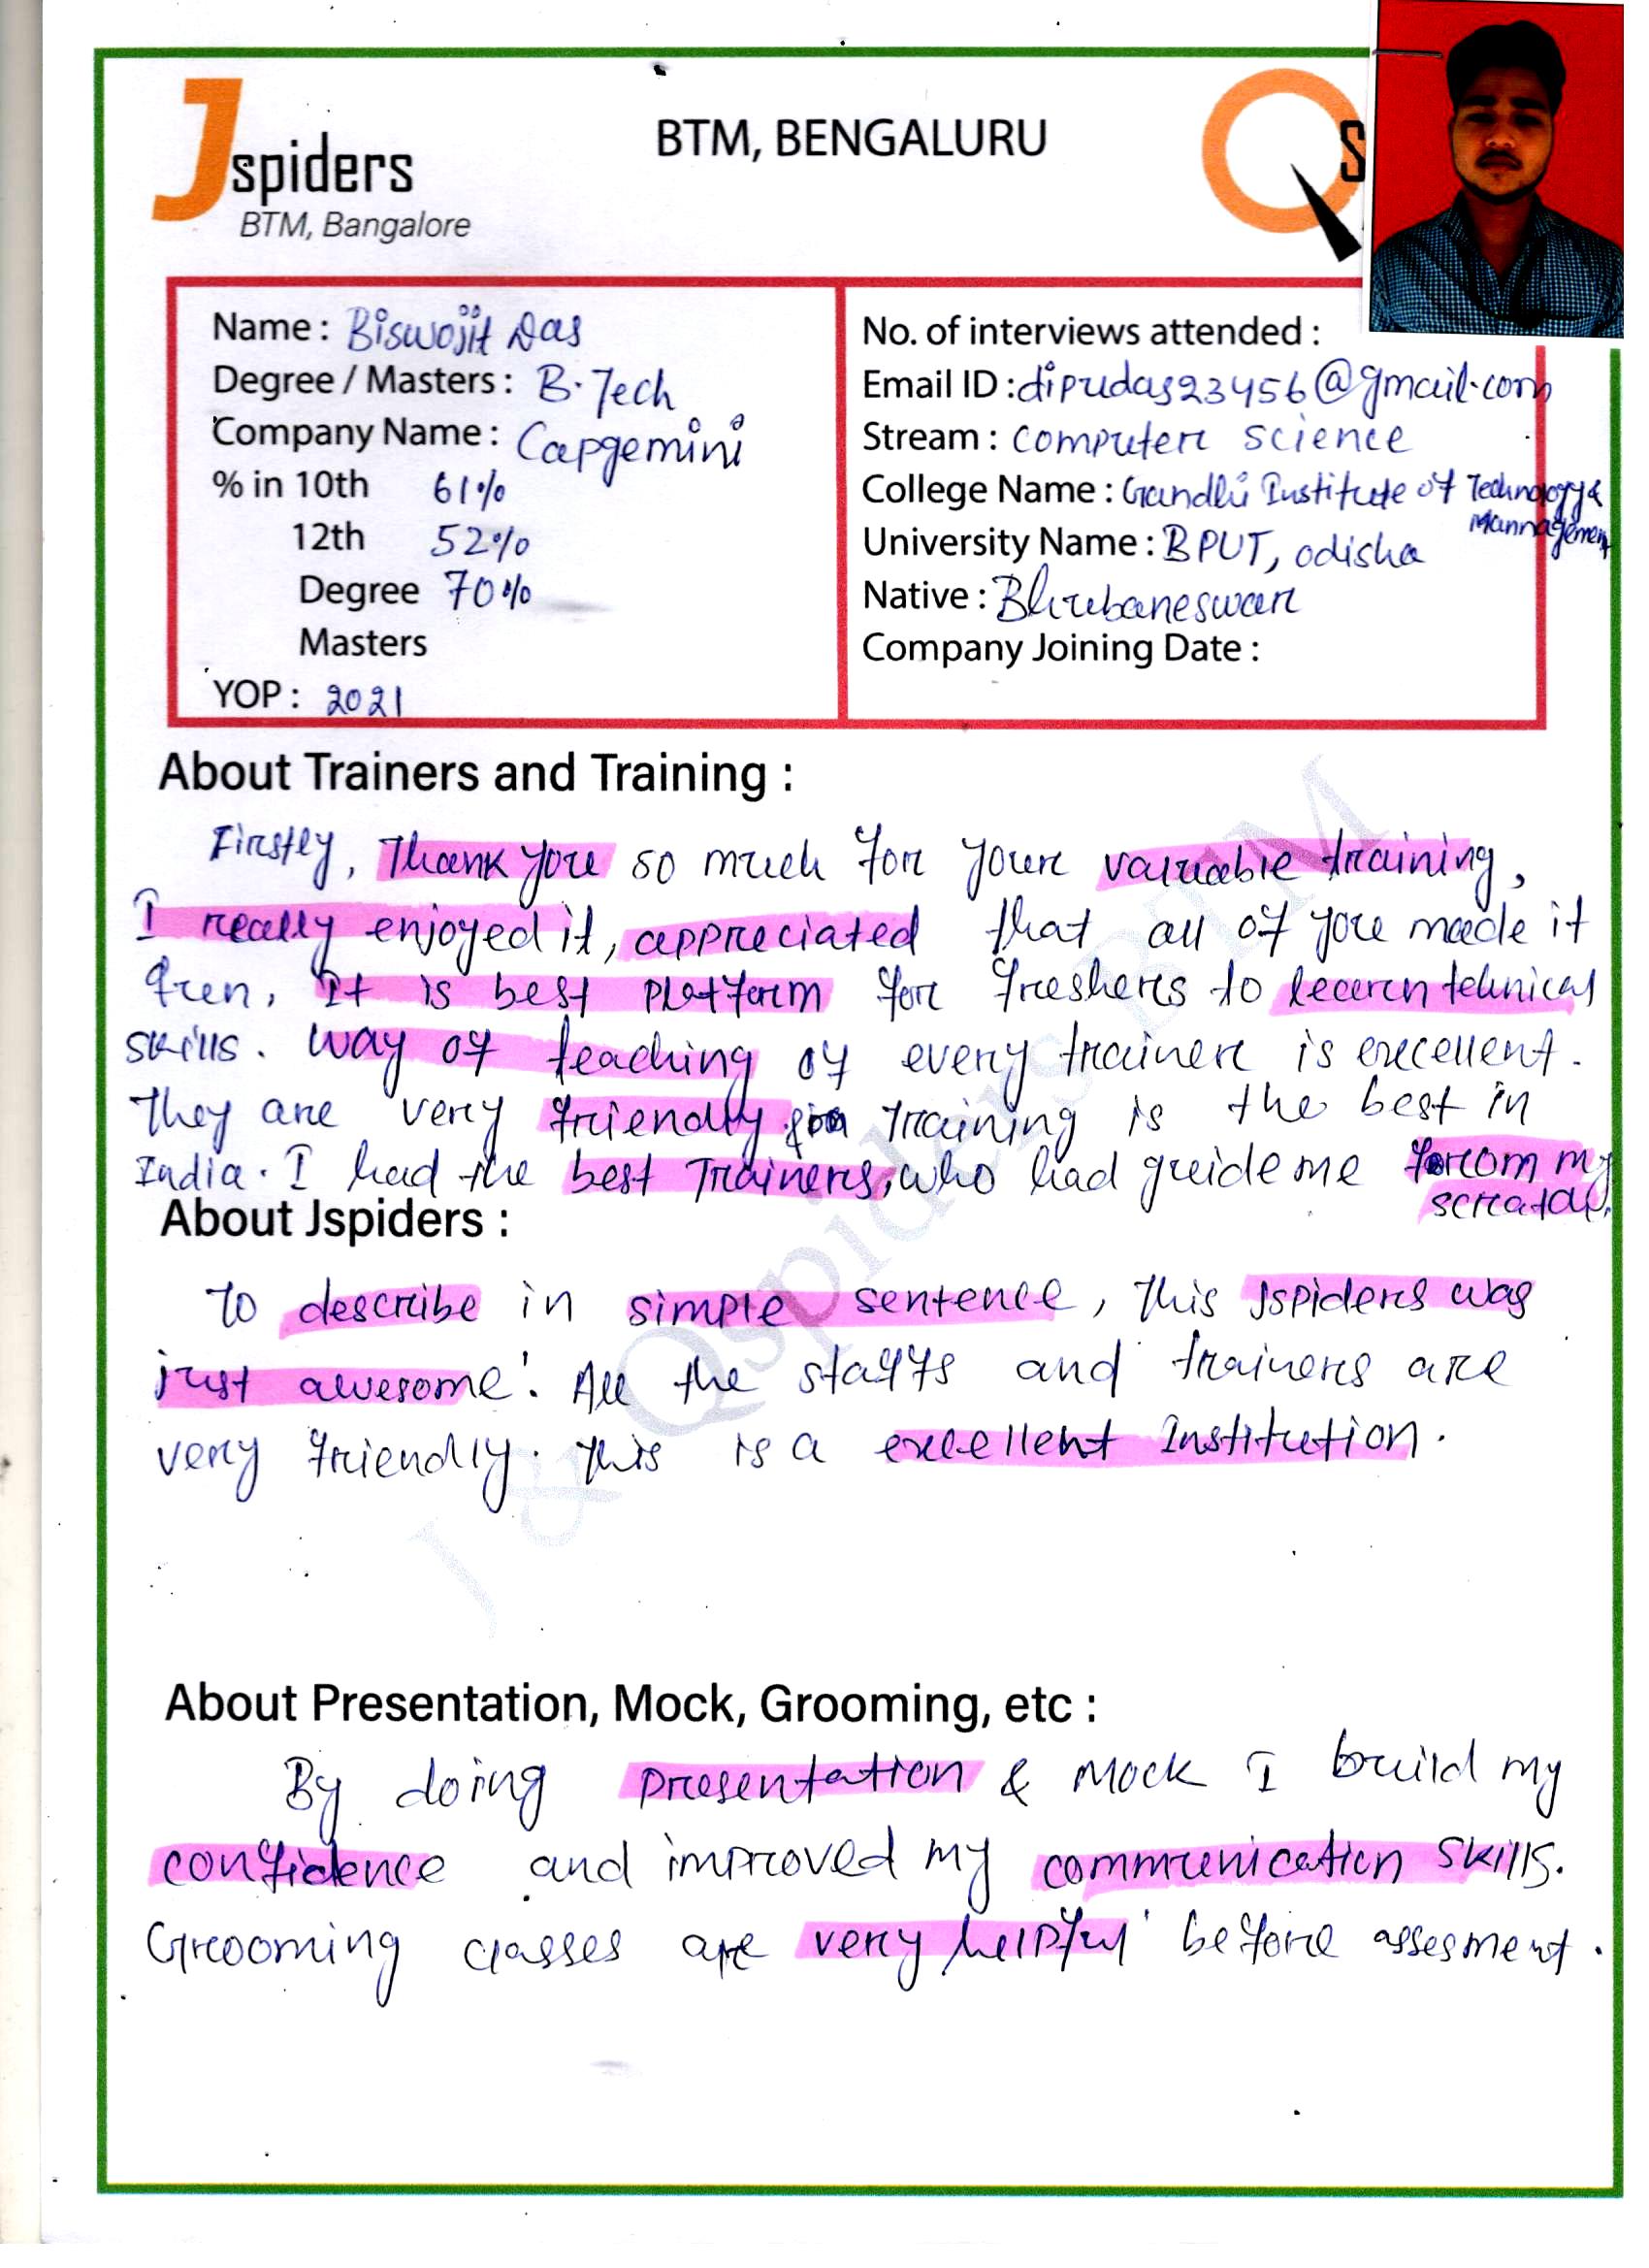 Jspiders
BTM, Bangalore
BTM, BENGALURU
Name : Biswojit Das
Degree / Masters : B.Tech
Company Name : Capgemini
% in 10th 61%
12th 52%
Degree 70%
Masters
YOP : 2021
No. of interviews attended :
Email ID : dipudas23456@gmail.com
Stream : Computer science
College Name : Gandhi Institute of Technology &
Mannagement
University Name : BPUT, odisha
Native : Bhubaneswar
Company Joining Date :
About Trainers and Training :
Firstly, Thank you so much for your valuable training,
I really enjoyed it, appreciated that all of you made it
fun. It is best platform for freshers to learn tehnical
skills. Way of teaching of every trainer is excellent.
They are very friendly training is the best in
India. I had the best Trainers, who had guide me from my
scratch.
About Jspiders :
To describe in simple sentence, this Jspiders was
just awesome! All the staffs and trainers are
very friendly. This is a excellent Institution.
About Presentation, Mock, Grooming, etc :
By doing presentation & Mock I build my
confidence and improved my communication skills.
Grooming classes are very helpful before assesment.
J & Qspiders BTM